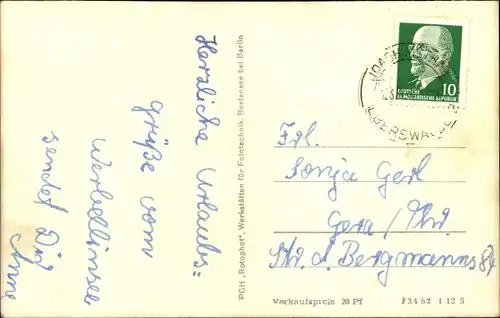 Herzliche Urlaubs=
grüße vom
Werbellinsee
sendet Dir
Anne
PGH „Rotophot“, Werkstätten für Fototechnik, Bestensee bei Berlin
10
DEUTSCHE
DEMOKRATISCHE REPUBLIK
EBERSWALDE
Frl.
Sonja Gerl
Gera / Thür
Str. d. Bergmanns 84
Verkaufspreis 20 Pf
F 3462 I 12 S